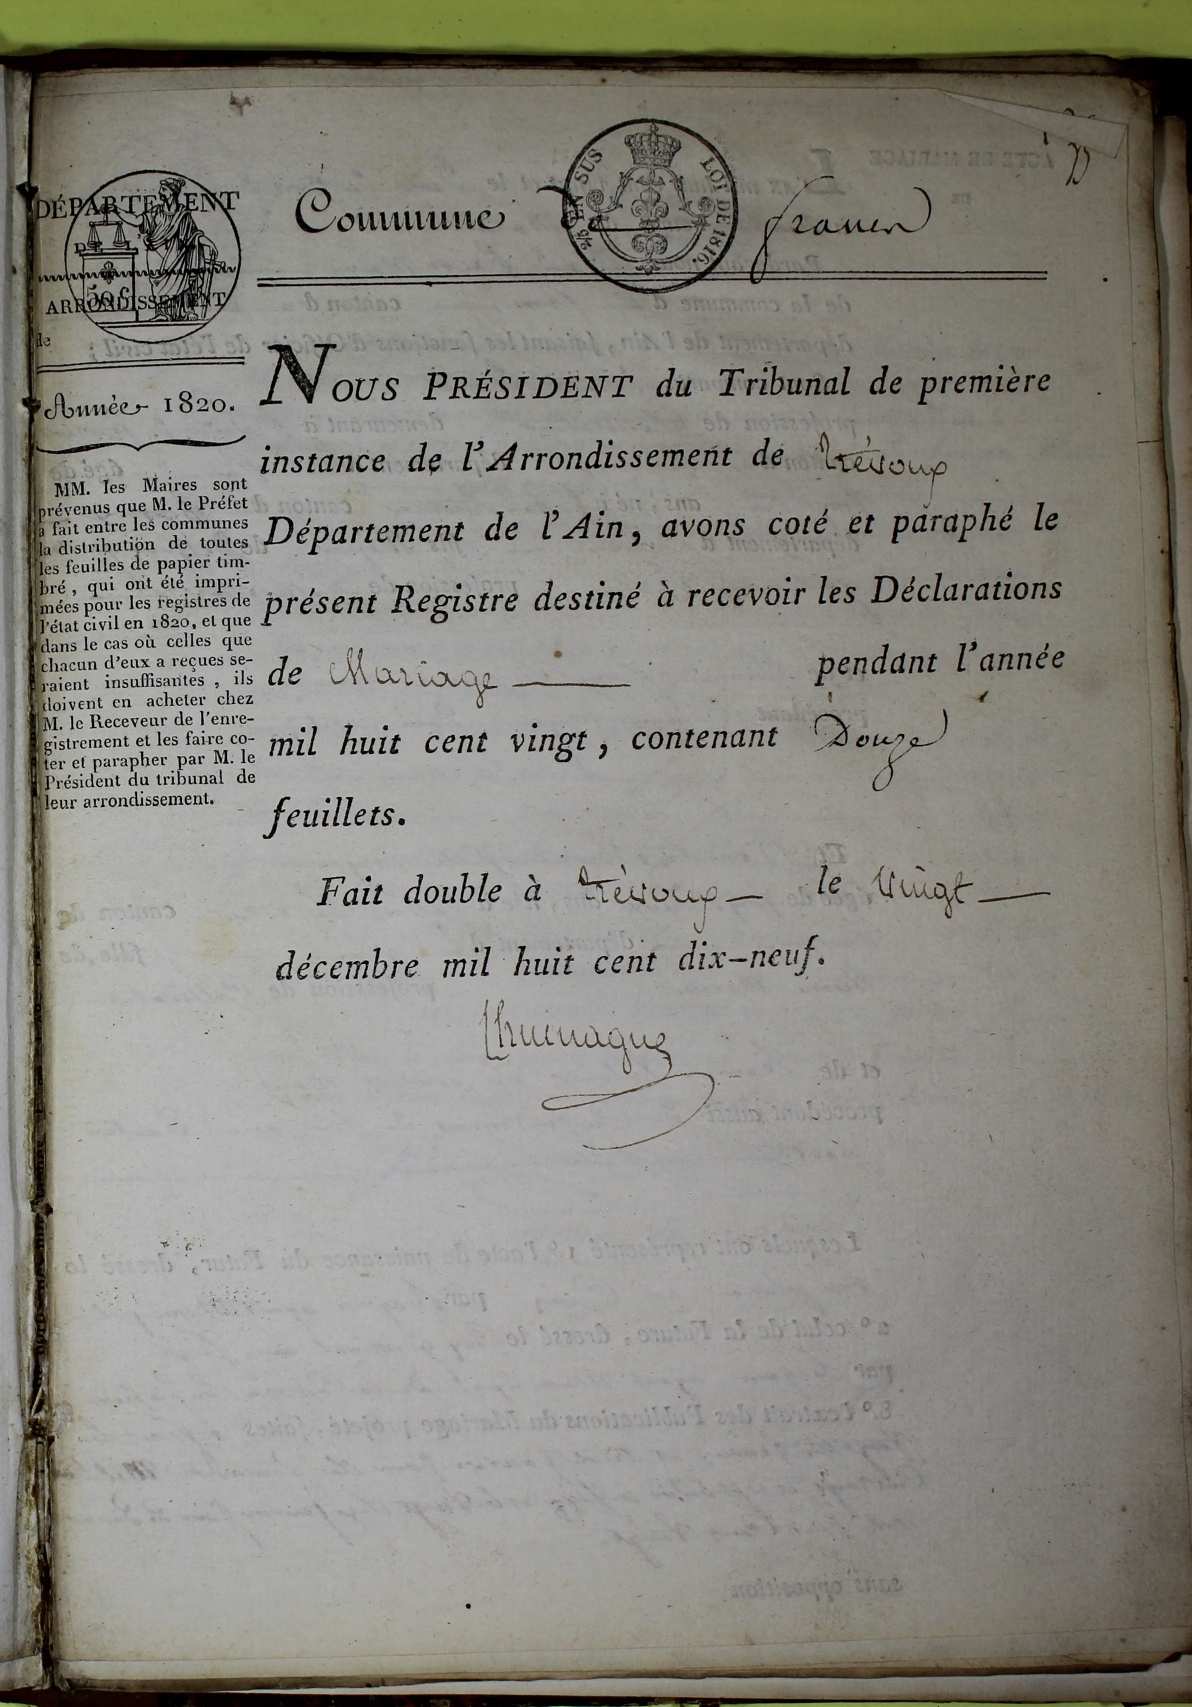 DÉPARTEMENT
DE
50 C.
ARRONDISSEMENT
de
Année 1820.
MM. les Maires sont
prévenus que M. le Préfet
a fait entre les communes
la distribution de toutes
les feuilles de papier tim-
bré, qui ont été impri-
mées pour les registres de
l'état civil en 1820, et que
dans le cas où celles que
chacun d'eux a reçues se-
raient insuffisantes, ils
doivent en acheter chez
M. le Receveur de l'enre-
gistrement et les faire co-
ter et parapher par M. le
Président du tribunal de
leur arrondissement.
EN SUS LOI DE 1816.
Commune d francen
NOUS PRÉSIDENT du Tribunal de première
instance de l'Arrondissement de Trévoux
Département de l'Ain, avons coté et paraphé le
présent Registre destiné à recevoir les Déclarations
de Mariage pendant l'année
mil huit cent vingt, contenant Douze
feuillets.
Fait double à Trévoux le vingt
décembre mil huit cent dix-neuf.